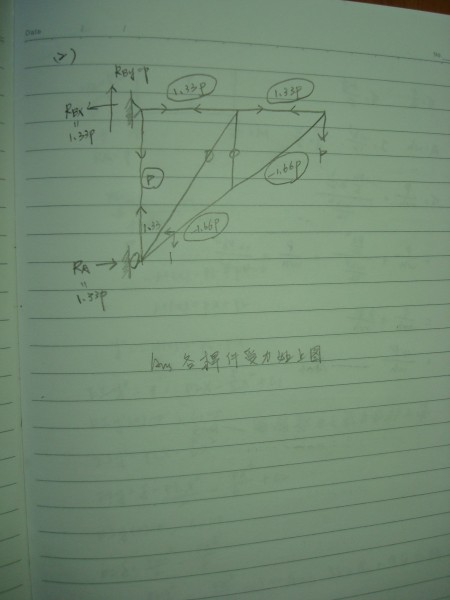 2)
RBy=P
RBx
"
1.33P
1.33P
1.33P
P
P
-1.66P
-1.66P
1.33
1
RA
"
1.33P
0
0
Ans 各桿件受力如上圖